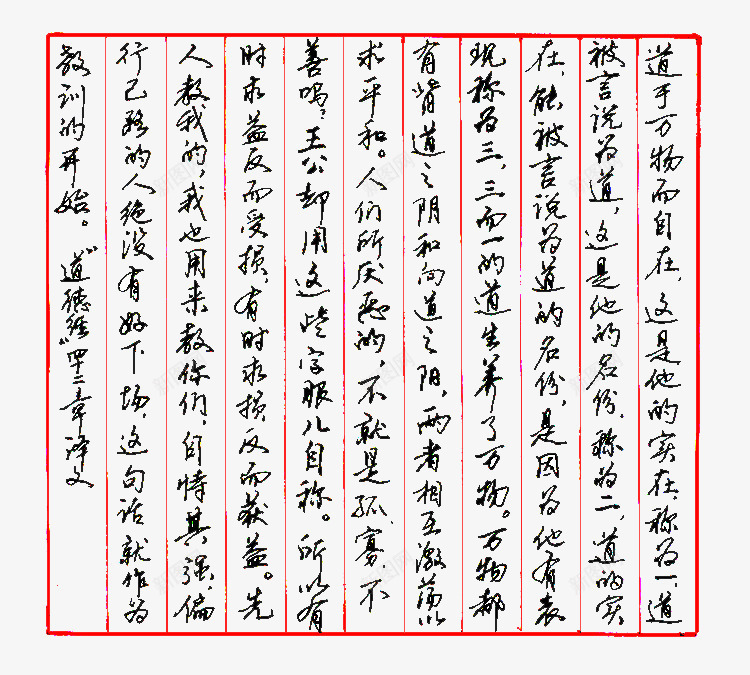 道于万物而自在，这是他的实在，称为一，道
被言说为道，这是他的名份，称为二，道的实
在，能被言说为道的名份，是因为他有表
现，称为三，三而一的道生养了万物。万物都
有背道之阴和向道之阳，两者相互激荡以
求平和。人们所厌恶的，不就是孤、寡、不
善吗，王公却用这些字眼儿自称。所以有
时求益反而受损，有时求损反而获益。先
人教我的，我也用来教你们，自恃其强，偏
行己路的人绝没有好下场，这句话就作为
教训的开始。“道德经”四十二章译文